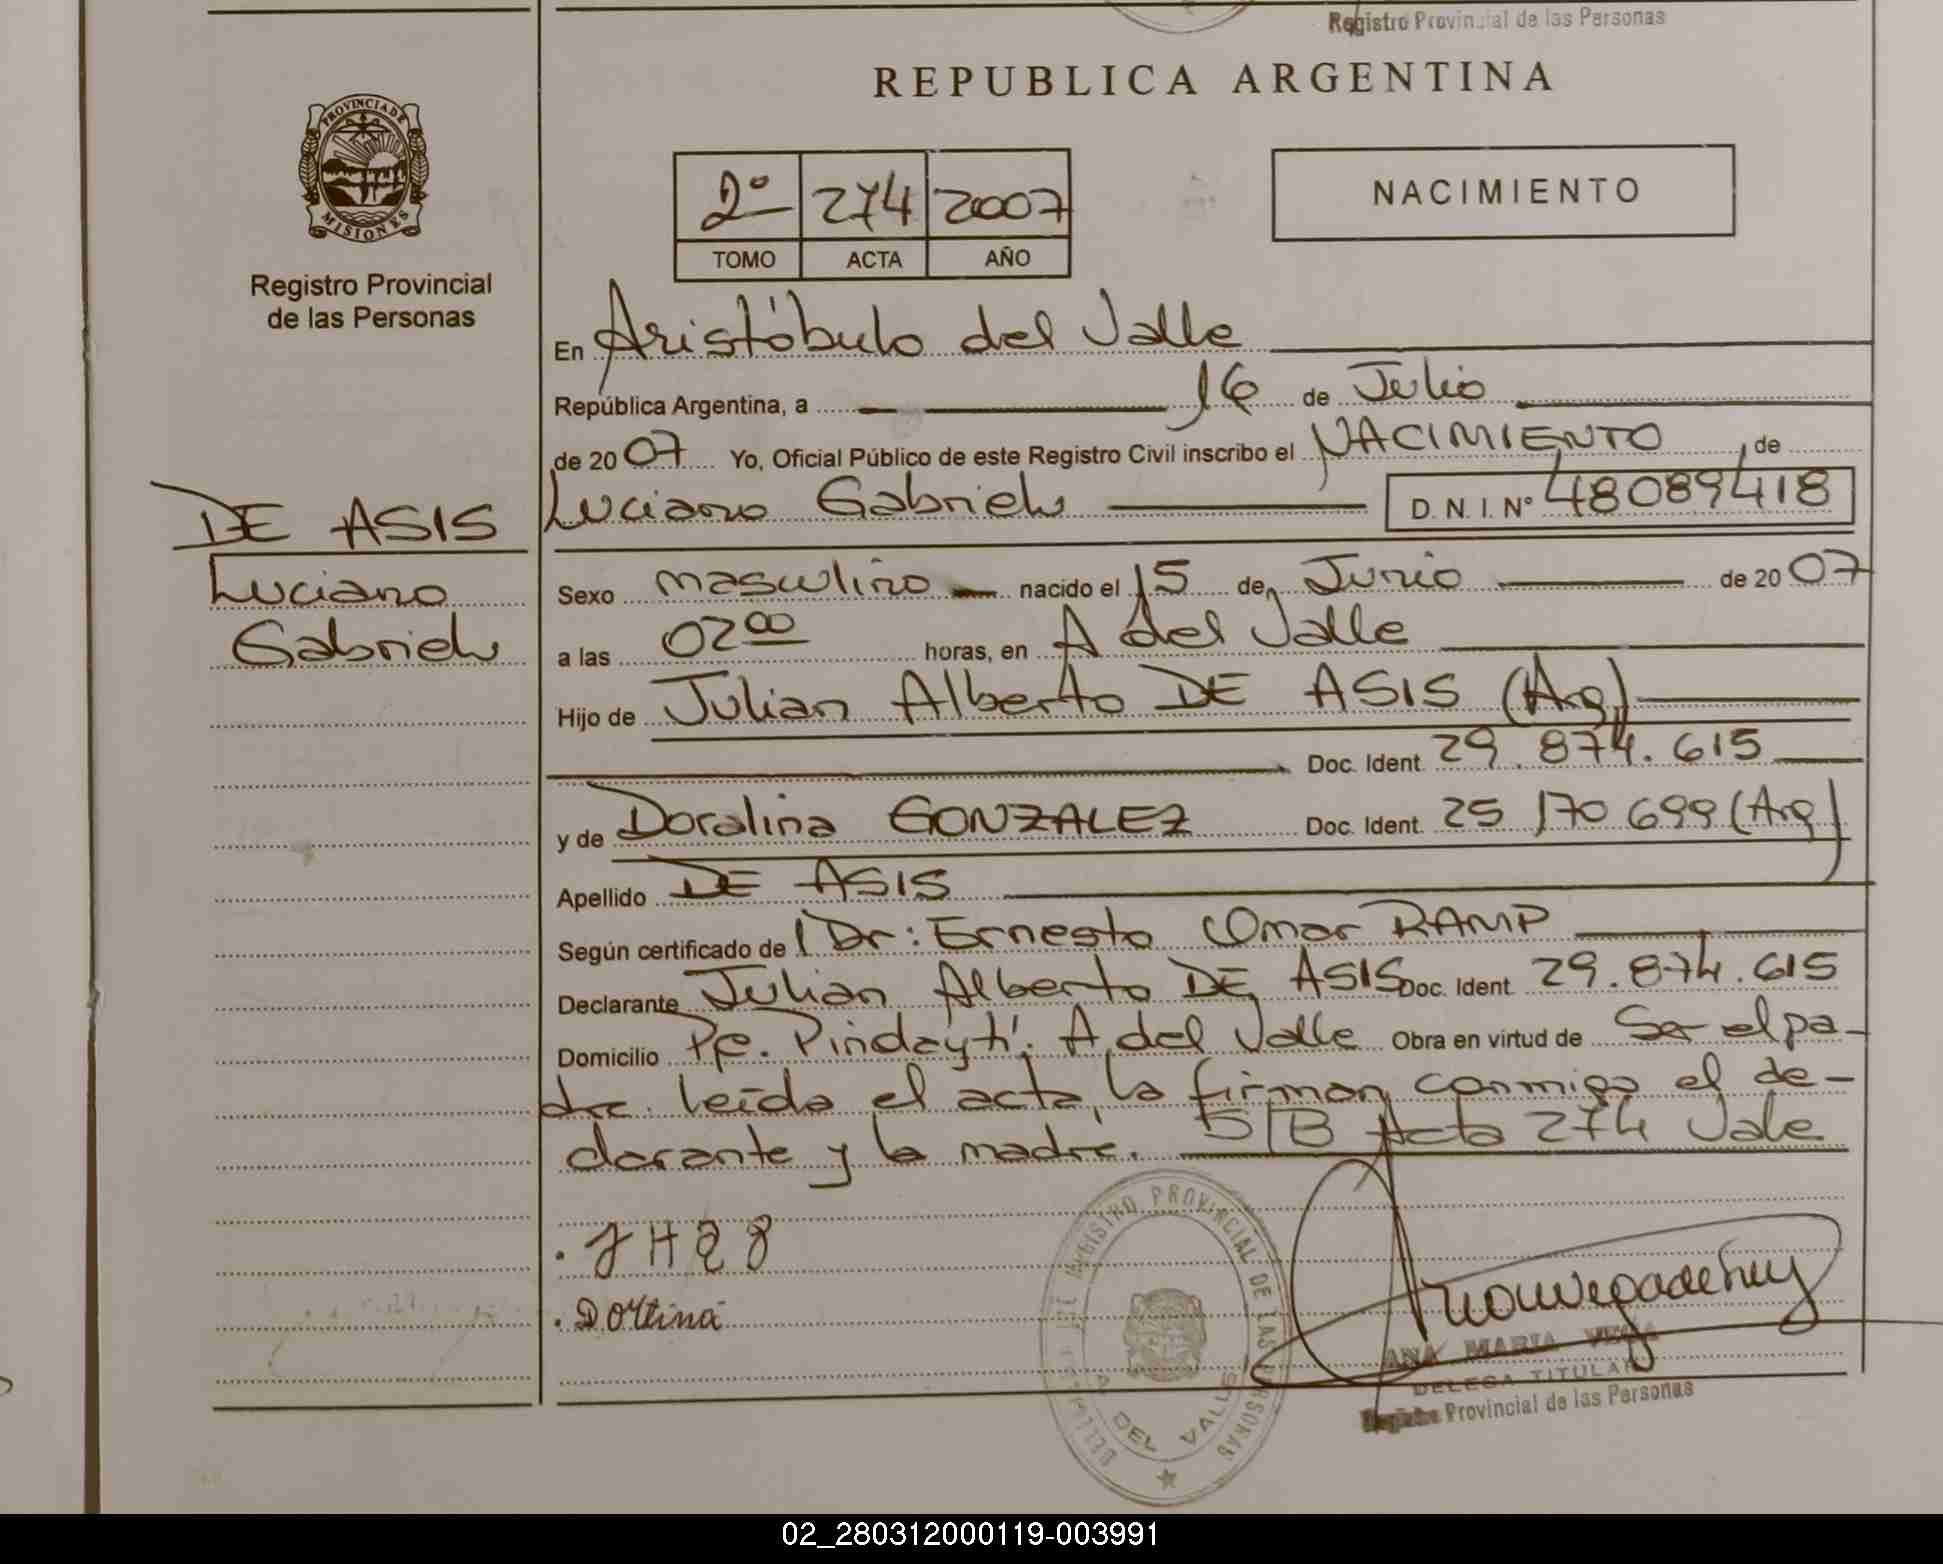 Registro Provincial de las Personas
REPUBLICA ARGENTINA
PROVINCIA DE MISIONES
Registro Provincial
de las Personas
2º 274 2007
TOMO ACTA AÑO
NACIMIENTO
En Aristóbulo del Valle
República Argentina, a 16 de Julio
de 2007 Yo, Oficial Público de este Registro Civil inscribo el NACIMIENTO, de
DE ASIS
Luciano
Gabriel
Luciano Gabriel D. N. I. Nº 48089418
Sexo masculino nacido el 15 de Junio de 2007
a las 02 00 horas, en A del Valle
Hijo de Julian Alberto DE ASIS (Arg)
Doc. Ident. 29.874.615
y de Doralina GONZALEZ Doc. Ident. 25 170 699 (Arg)
Apellido DE ASIS
Según certificado de Dr: Ernesto Omar RAMP
Declarante Julian Alberto DE ASIS Doc. Ident. 29.874.615
Domicilio A del Valle Obra en virtud de Ser el pa-
dre. leída el acta, la firman conmigo el de-
clarante y la madre. S/B Acta 274 Vale
REGISTRO PROVINCIAL DE LAS PERSONAS
DEL VALLE
ANA MARIA VEGA
DELEGA TITULAR
Registro Provincial de las Personas
02_280312000119-003991